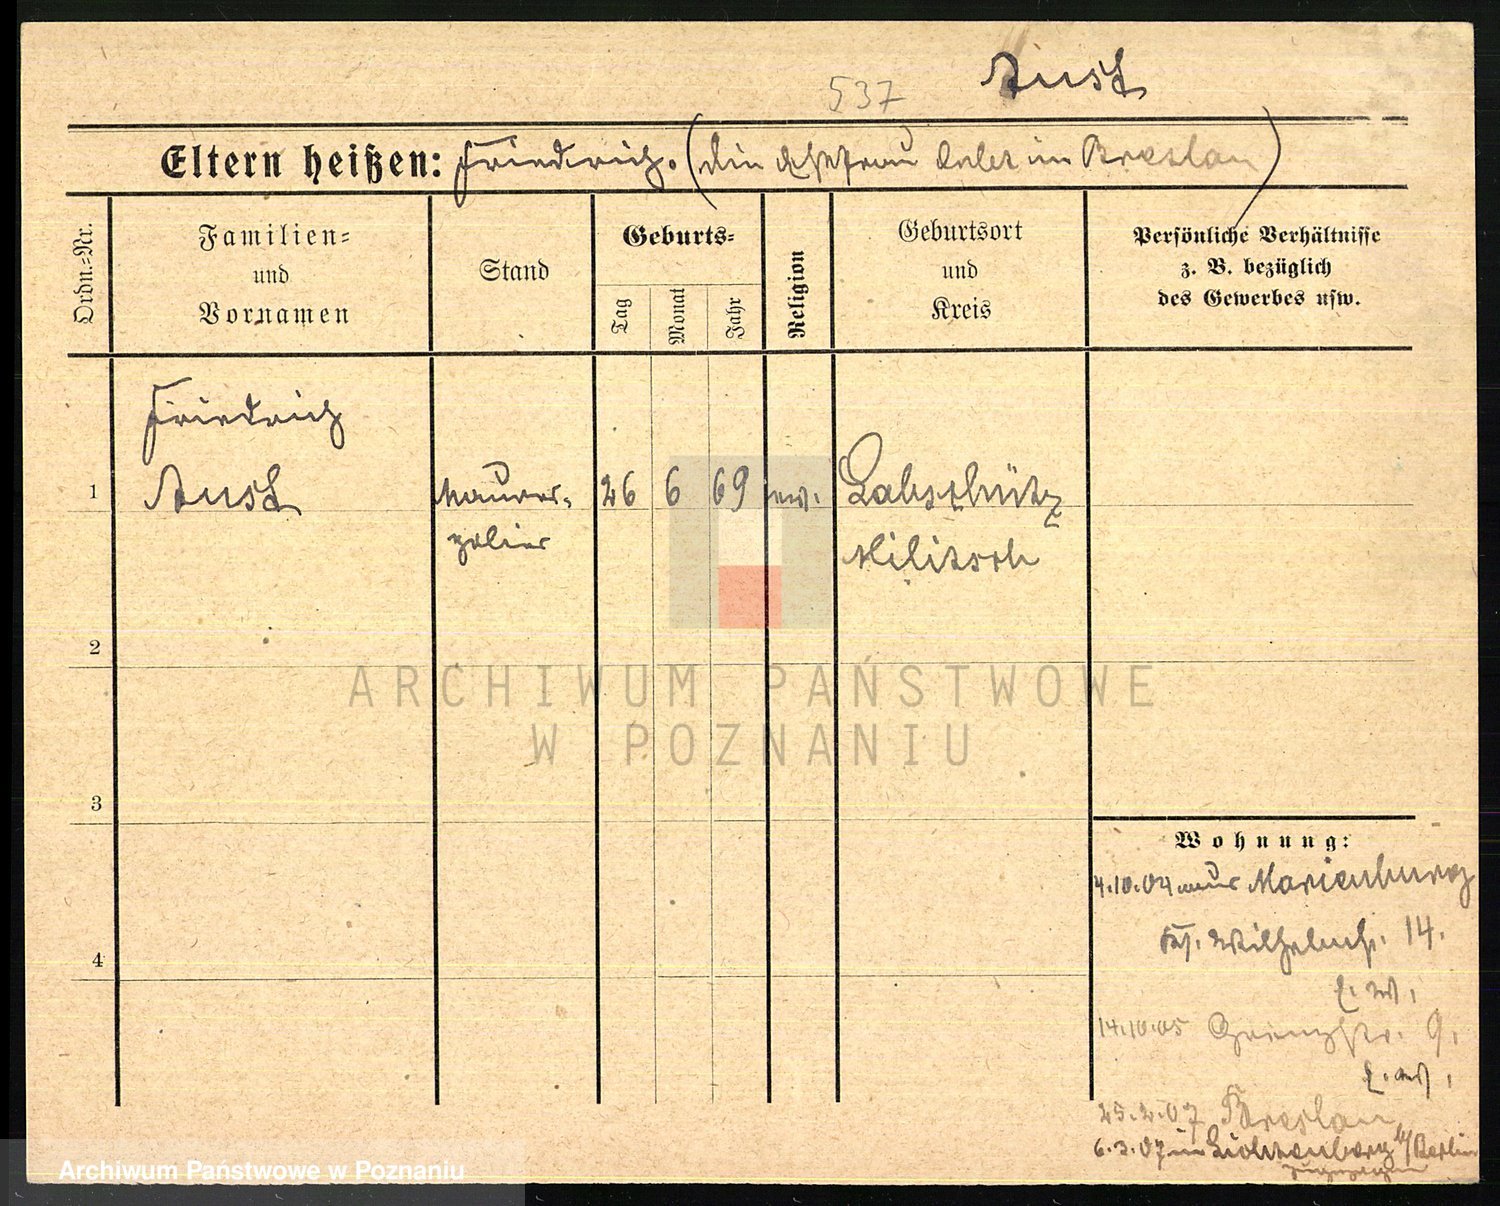 537 Aust
Eltern heißen: Friedrich. (die Ehefrau lebt in Breslau)
Ordn.=Nr.
Familien=
und
Vornamen
Stand
Geburts=
Tag
Monat
Jahr
Religion
Geburtsort
und
Kreis
Persönliche Verhältnisse
z. B. bezüglich
des Gewerbes usw.
Friedrich
1 Aust Maurer= 26 6 69 ev. Labschütz
polier Militsch
2
3
4
ARCHIWUM PAŃSTWOWE
W POZNANIU
Wohnung:
4.10.04 aus Marienburg
Wilhelmstr. 14.
14.10.05 9.
25.2.07 Breslau
6.3.07 in Lichtenberg b/Berlin
zugezogen
Archiwum Państwowe w Poznaniu